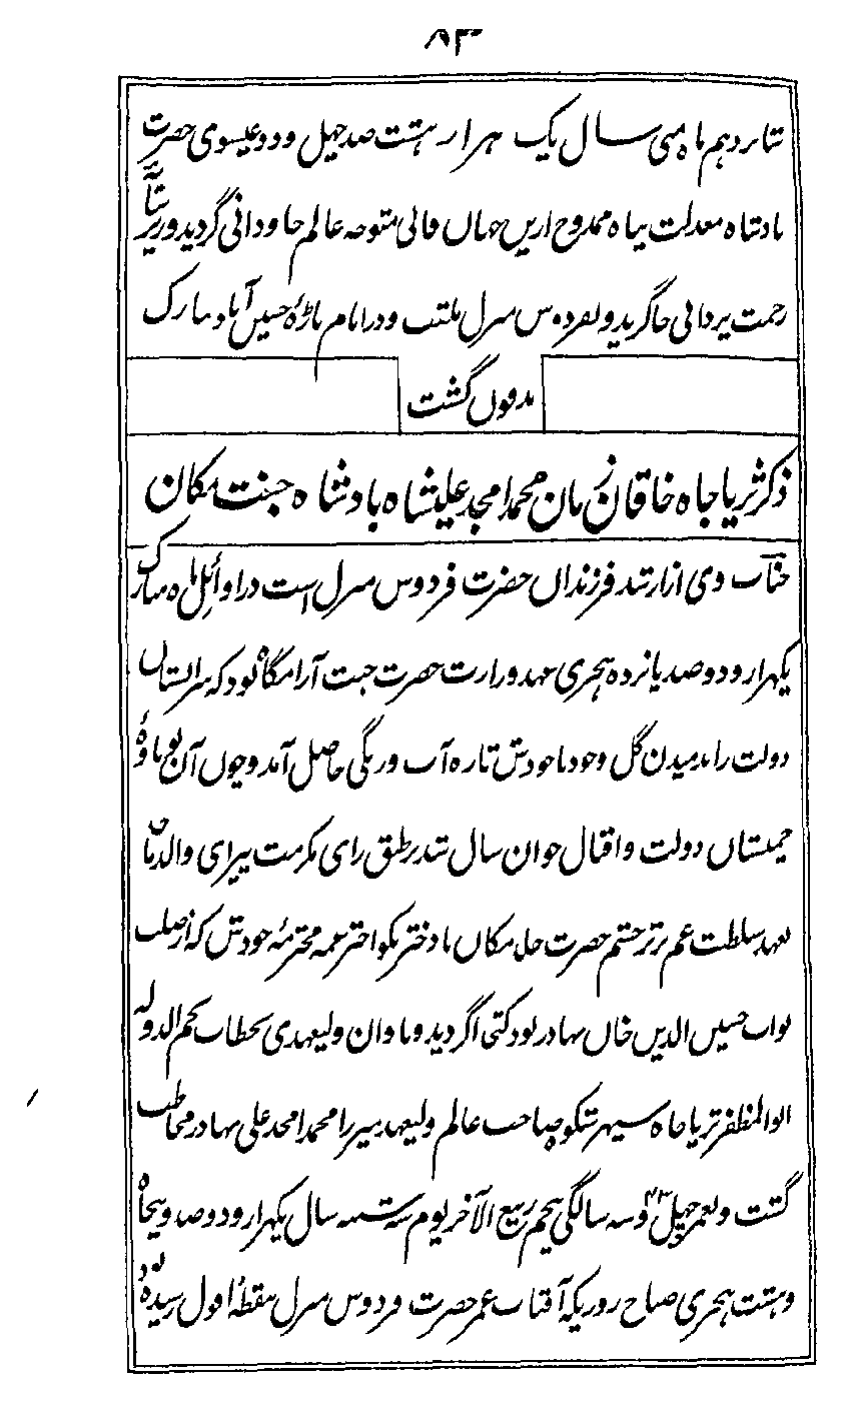 ۸۳
شانزدهم ماه مئی سال یک هزار هشت صد چهل و دو عیسوی حضرت
بادشاه معدلت پناه ممدوح ازین جهان فانی متوجه عالم جاودانی گردید و زیر سایهٔ
رحمت یزدانی جا گزید و بفردوس منزل ملقب و در امام باڑهٔ حسین آباد مبارک
مدفون گشت
ذکر ثریا جاه خاقان زمان محمد امجد علیشاه بادشاه جنت مکان
جناب وی از ارشد فرزندان حضرت فردوس منزل است در اوائل ماه مبارک
یکهزار و دو صد یانزده هجری عهد وزارت حضرت جنت آرامگاه بود که سرابستان
دولت را بدمیدن گل وجود باجودش تازه آب و رنگی حاصل آمد و چون آن نوباوهٔ
چمنستان دولت و اقبال جوان سال شد برطبق رای مکرمت پیرای والد ماجد
بعهد سلطنت عم برتر حشم حضرت خلد مکان با دختر نکو اختر عمه محترمهٔ خودش که از صلب
نواب حسین الدین خان بهادر بود کتخدا گردید و باوان ولیعهدی بخطاب نجم الدوله
ابوالمظفر ثریا جاه سپهر شکوه صاحب عالم ولیعهد میرزا محمد امجد علی بهادر مخاطب
گشت و بعمر چهل ۴۳ و سه سالگی پنجم ربیع الآخر یوم سه شنبه سال یکهزار و دو صد و پنجاه
و هشت هجری صباح روزیکه آفتاب عمر حضرت فردوس منزل بنقطهٔ افول رسیده بود